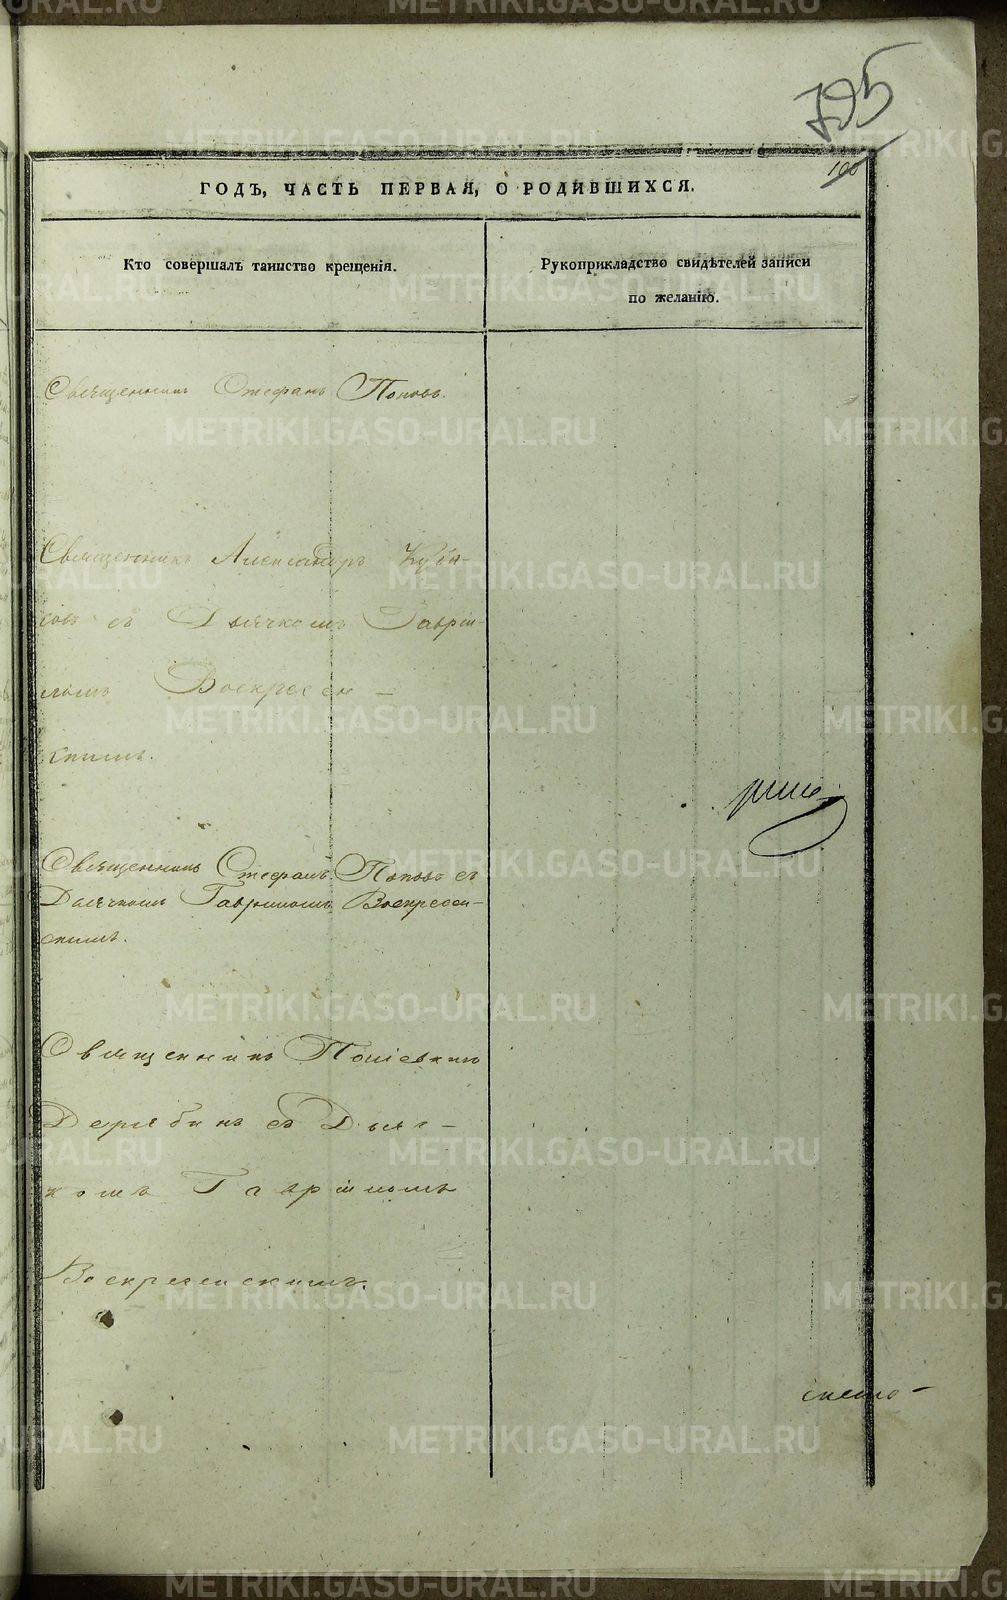 795
100
ГОДЪ, ЧАСТЬ ПЕРВАЯ, О РОДИВШИХСЯ.
Кто совершалъ таинство крещенія.
Рукоприкладство свидѣтелей записи
по желанію.
Священникъ Стефанъ Поповъ.
Священникъ Александръ
съ Дьячкомъ Гаврiи-
ломъ Воскресен-
скимъ.
Священникъ Стефанъ Поповъ съ
Дьячкомъ Гавріиломъ Воскресен-
скимъ.
Священникъ
Дерябинъ съ Дьяч-
комъ Гавріиломъ
Воскресенскимъ.
METRIKI.GASO-URAL.RU